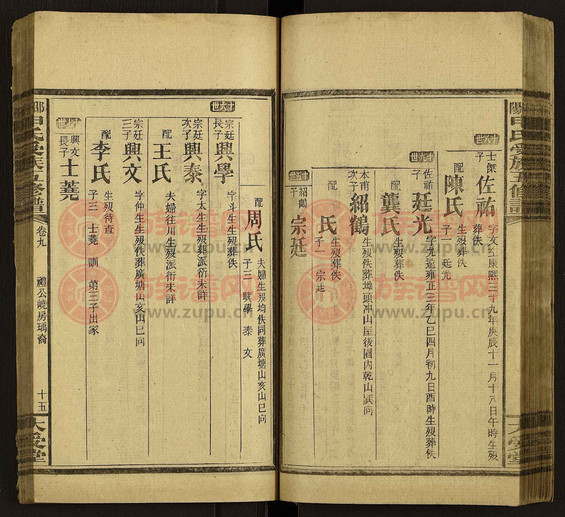 士傑
子
佐祐
字文玉康熙三十九年庚辰十一月十八日午時生歿
葬佚
配
陳氏
生歿葬佚
子一 廷光
佐祐
子
廷光
字九遠雍正三年乙巳四月初九日酉時生歿葬佚
配
龔氏
生歿葬佚
次子
紹鶴
生歿佚葬塘頭冲山屋後園內乾山巽向
配
氏
生歿葬佚
子一 宗廷
紹鶴
子
宗廷
配
周氏
夫婦生歿均佚同葬廣塘山亥山巳向
子三 興學 泰 文
宗廷
長子
興學
字斗生生歿佚葬廣塘山亥山巳向
宗廷
次子
興泰
字太生生歿派衍未詳
配
王氏
夫婦往川生歿派衍未詳
宗廷
三子
興文
字仲生生歿佚葬廣塘山亥山巳向
配
李氏
生歿待查
子三 士蕘 訓 第三子出家
興文
長子
士蕘
申氏受族五修譜
卷九
禮公峴房瑀裔
十五
族谱网
www.zupu.cn